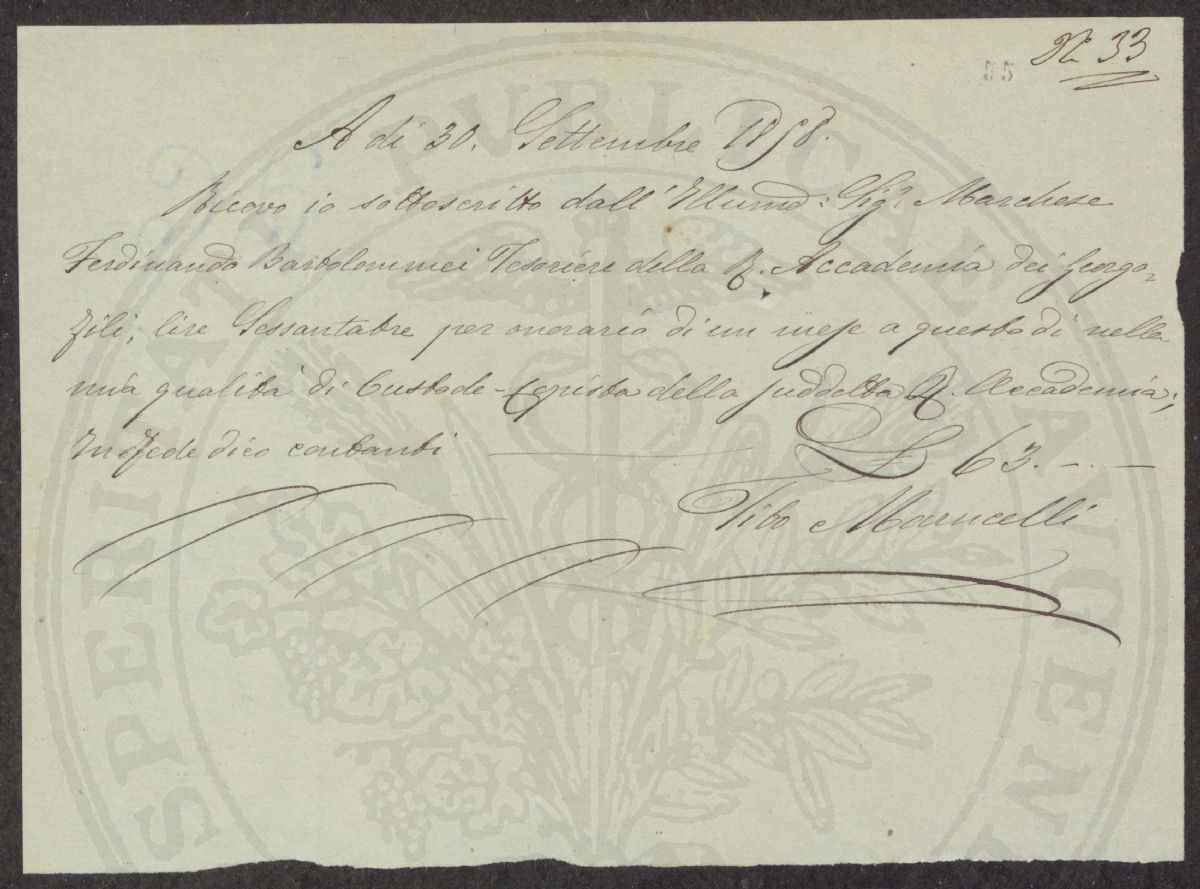 No 33
55
A di 30. Settembre 1858.
Ricevo io sottoscritto dall'Illumo: Sigr Marchese
Ferdinando Bartolommei Tesoriere della R. Accademia dei Georgo=
fili, lire Sessantatre per onorario di un mese a questo dì nella
mia qualità di Custode-Copista della suddetta R. Accademia;
In fede dico contanti L 63. - . -
Tito Marucelli
PROSPERITATI PUBLICAE AUGENDAE